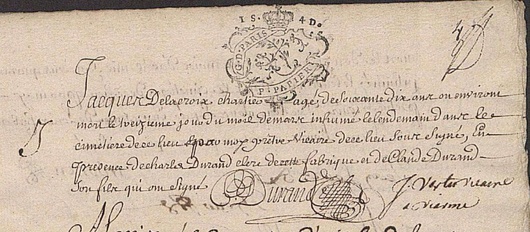 1 S · 4 D
G · PARIS
PAPIER
Jacques Delacroix chartier agé de soixante dix ans ou environt
mort le treizieme jour du mois de mars inhumé le lendemain dans le
cimetiere de ce lieu par moy prêtre vicaire de ce lieu sous signé, En
presence de charles Durand clerc de cette fabrique et de Claude Durand
son fils qui ont signé
Durand
vicaire